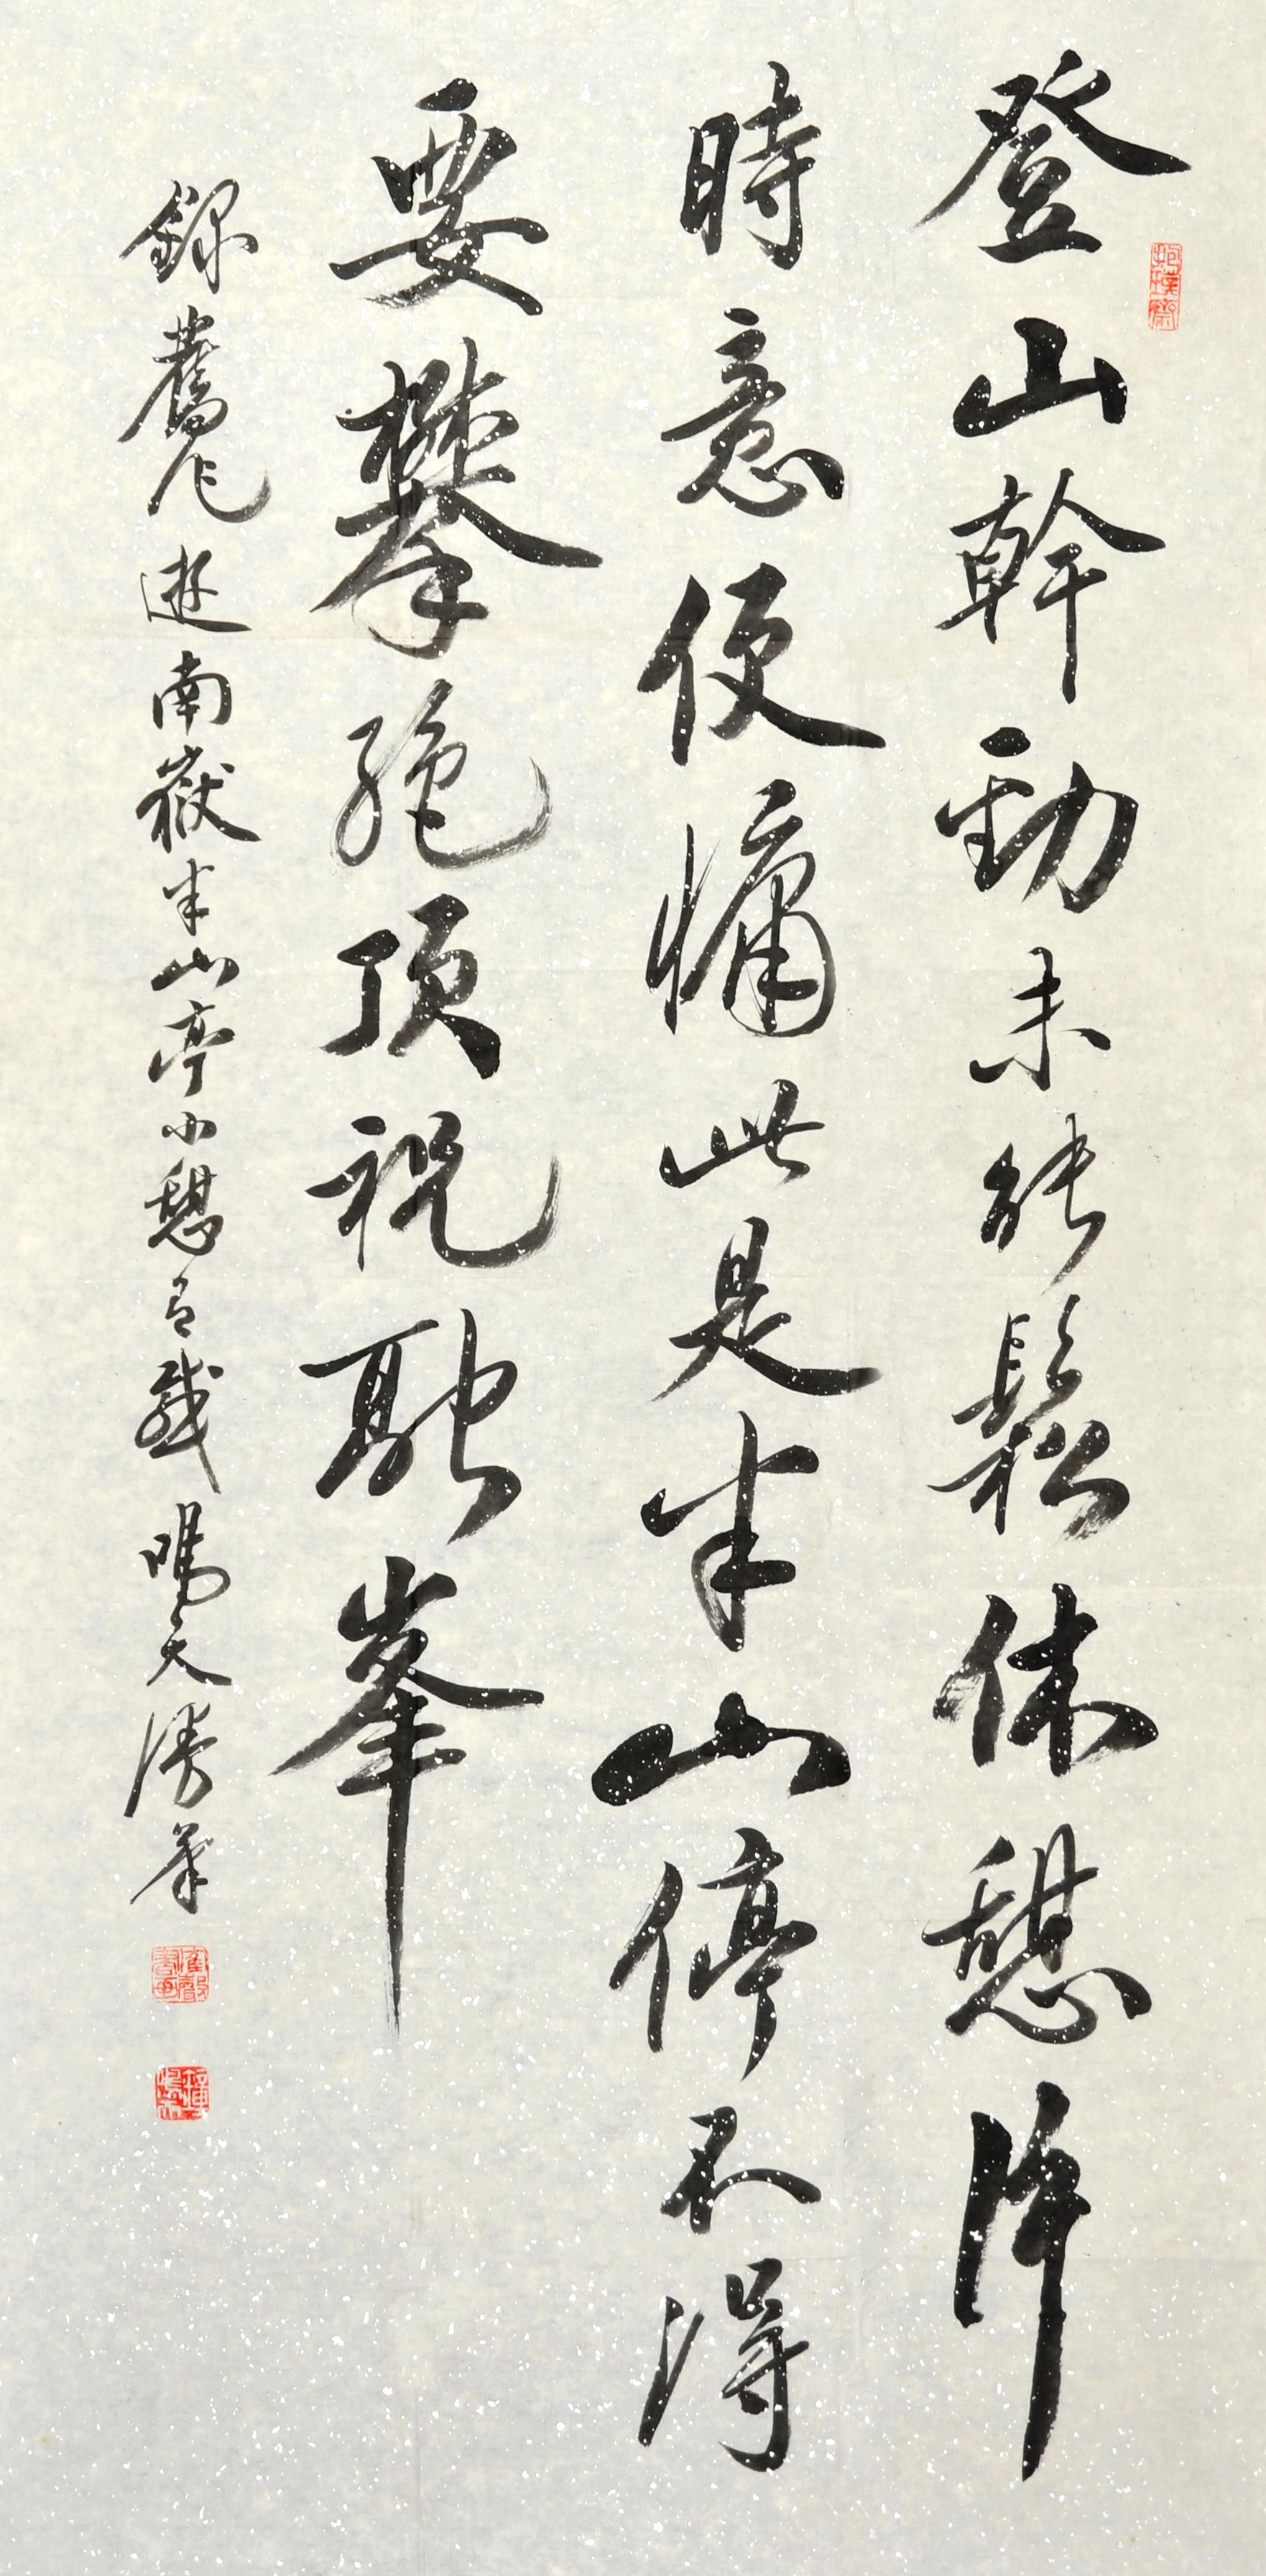 登山幹勁未能鬆休憩許
時意便慵此是半山停不得
要攀絕頂祝融峯
錄舊作遊南嶽半山亭小憩有感 楊天 筆